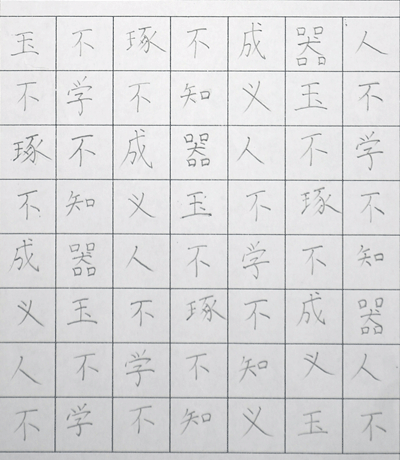 玉不琢不成器人
不学不知义玉不
琢不成器人不学
不知义玉不琢不
成器人不学不知
义玉不琢不成器
人不学不知义人
不学不知义玉不